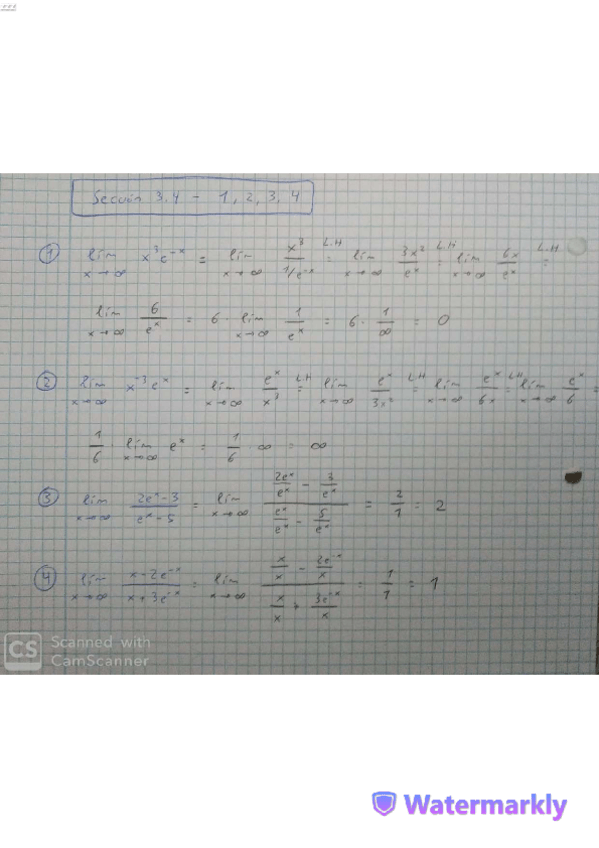 Section 3.4 - 1, 2, 3, 4
① lim x→∞ x³e⁻ˣ = lim x→∞ x³/(1/e⁻ˣ) L.H = lim x→∞ 3x²/eˣ L.H = lim x→∞ 6x/eˣ L.H =
lim x→∞ 6/eˣ = 6 · lim x→∞ 1/eˣ = 6 · 1/∞ = 0
② lim x→∞ x⁻³eˣ = lim x→∞ eˣ/x³ L.H = lim x→∞ eˣ/3x² = lim x→∞ eˣ/6x L.H = lim x→∞ eˣ/6 =
1/6 · lim x→∞ eˣ = 1/6 · ∞ = ∞
③ lim x→∞ (2eˣ-3)/(eˣ-5) = lim x→∞ (2eˣ/eˣ - 3/eˣ)/(eˣ/eˣ - 5/eˣ) = 2/1 = 2
④ lim x→∞ (x-2e⁻ˣ)/(x+3e⁻ˣ) = lim x→∞ (x/x - 2e⁻ˣ/x)/(x/x + 3e⁻ˣ/x) = 1/1 = 1
CS Scanned with
CamScanner
Watermarkly